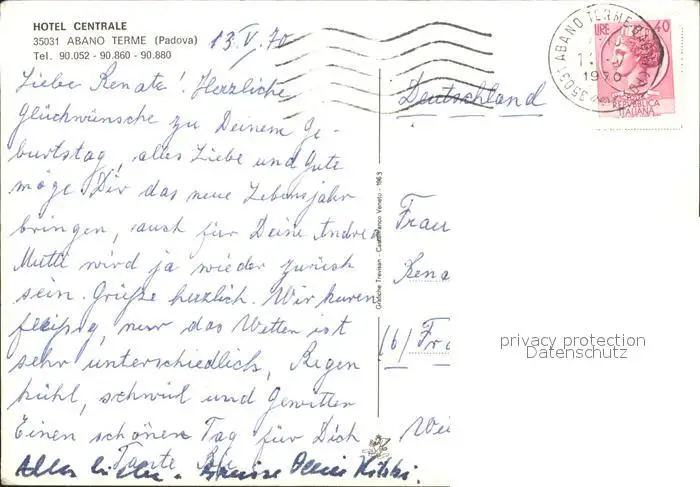 HOTEL CENTRALE
35031 ABANO TERME (Padova)
Tel. 90.052 - 90.860 - 90.880
13.V.70
Liebe Renate! Herzliche
Glückwünsche zu Deinem Ge-
burtstag, alles Liebe und Gute
möge Dir das neue Lebensjahr
bringen, auch für Deine Andrea
Mutti wird ja wieder zurück
sein. Grüße herzlich. Wir kuren
fleißig, nur das Wetter ist
sehr unterschiedlich, Regen
kühl, schwül und Gewitter
Einen schönen Tag für Dich
Tante
Alles Liebe
Grafiche Trevisan - Castelfranco Veneto - 1963
Deutschland
Frau
Rena
(6) Fra
Wei
35031 ABANO TERME
1970
LIRE 40
REPUBBLICA
ITALIANA
privacy protection
Datenschutz